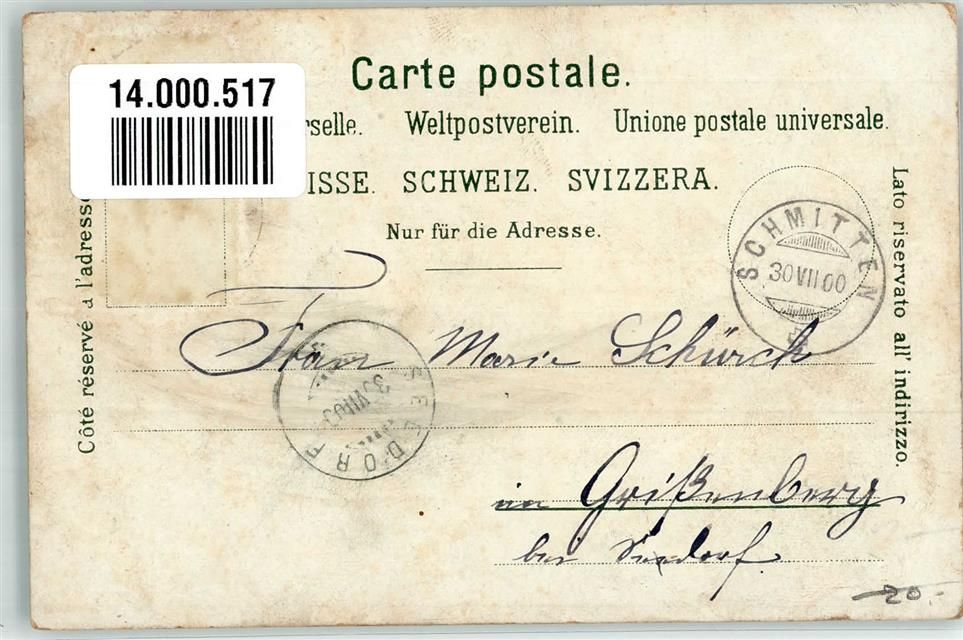 14.000.517
Carte postale.
rselle. Weltpostverein. Unione postale universale.
ISSE. SCHWEIZ. SVIZZERA.
Nur für die Adresse.
Côté réservé à l'adresse
Lato riservato all' indirizzo.
SCHMITTEN
30 VII 00
Frau Marie Schürch
SEEDORF
im Grißenberg
bei Seedorf
20.-